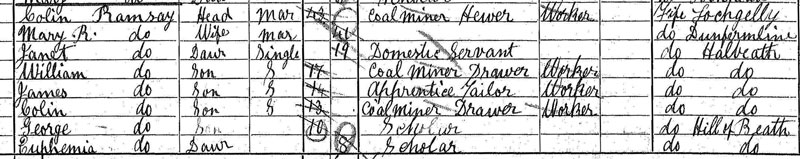 Colin Ramsay Head Mar 43 Coal miner Hewer Worker Fife Lochgelly
Mary R. do Wife mar do Dunfermline
Janet do Daur Single 19 Domestic Servant do Halbeath
William do Son S 17 Coal Miner Drawer Worker do do
James do Son S 14 Apprentice Tailor Worker do do
Colin do Son S 13 Coalminer Drawer Worker do do
George do Son 10 Scholar do Hill of Beath
Euphemia do Daur 8 Scholar do do